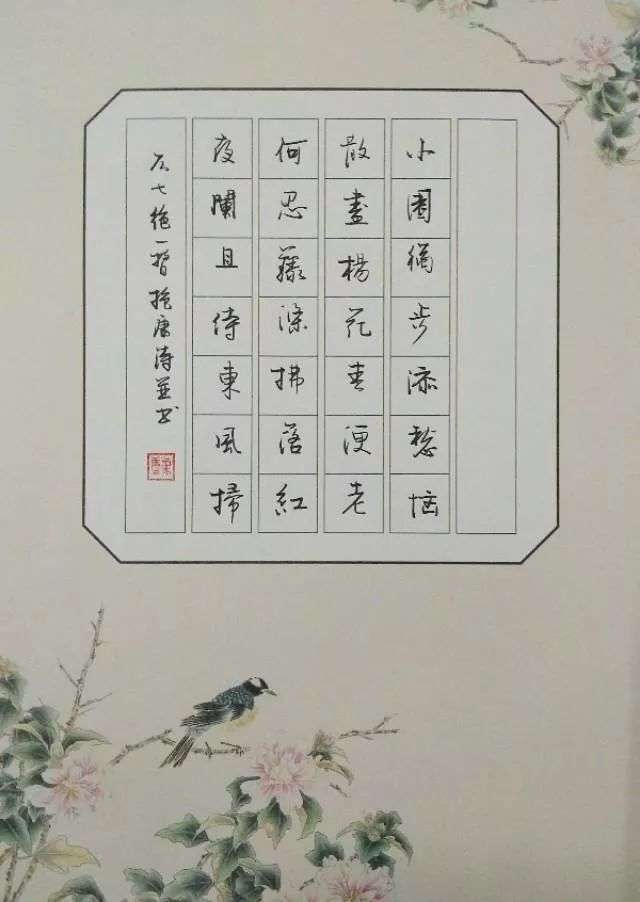 小園獨步添愁惱
散盡楊花春便老
何忍拂落紅
夜闌且待東風掃
七絕一首唐詩並书